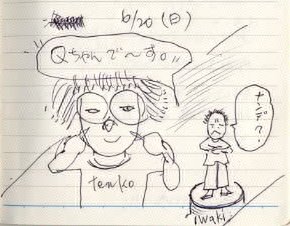 6/20 (日)
Qちゃんで〜す。
ナンデ?
tenko
iwaki